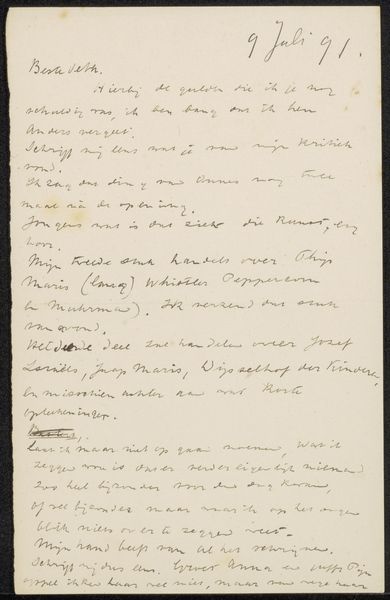 9 Juli 91.
Beste Veth.
Hierbij de gulden die ik je nog
schuldig was, ik ben bang dat ik hem
anders vergeet.
Schrijf mij eens wat je van mijn kritiek
vond.
Ik zag dat ding van Annes nog twee
maal na de opening.
Jongens wat is dat ziek die Kunst, erg
hoor.
Mijn tweede stuk handelt over Thijs
Maris (lang) Whistler Peppercorn
en Muhrman). Ik verzend dat stuk
van avond.
Het derde deel zal handelen over Jozef
Israëls, Jaap Maris, Wijsselhof der Kinderen,
en misschien achter aan wat korte
opteekeningen.
laat ik maar niet op gaan noemen, Wat ik
zeggen wou is dat er verder eigenlijk niemand
zoo heel bijzonder voor den dag kwam,
of wel bijzonder maar waar ik op het oogen
blik niets over te zeggen weet.
Mijn hand beeft van al het schrijven.
Schrijf mij dus eens. Groet Anna en
ik haar niet, maar van